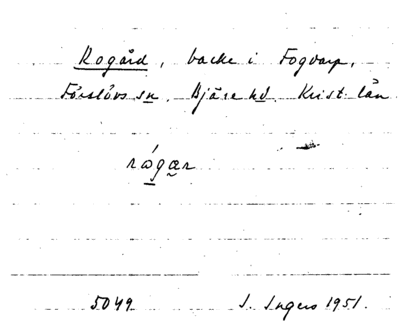 Rogård, backe i Fogdarp,
Förslövs sn. Bjäre hd. Krist. län
rógær
5049. I. Ingers 1951.